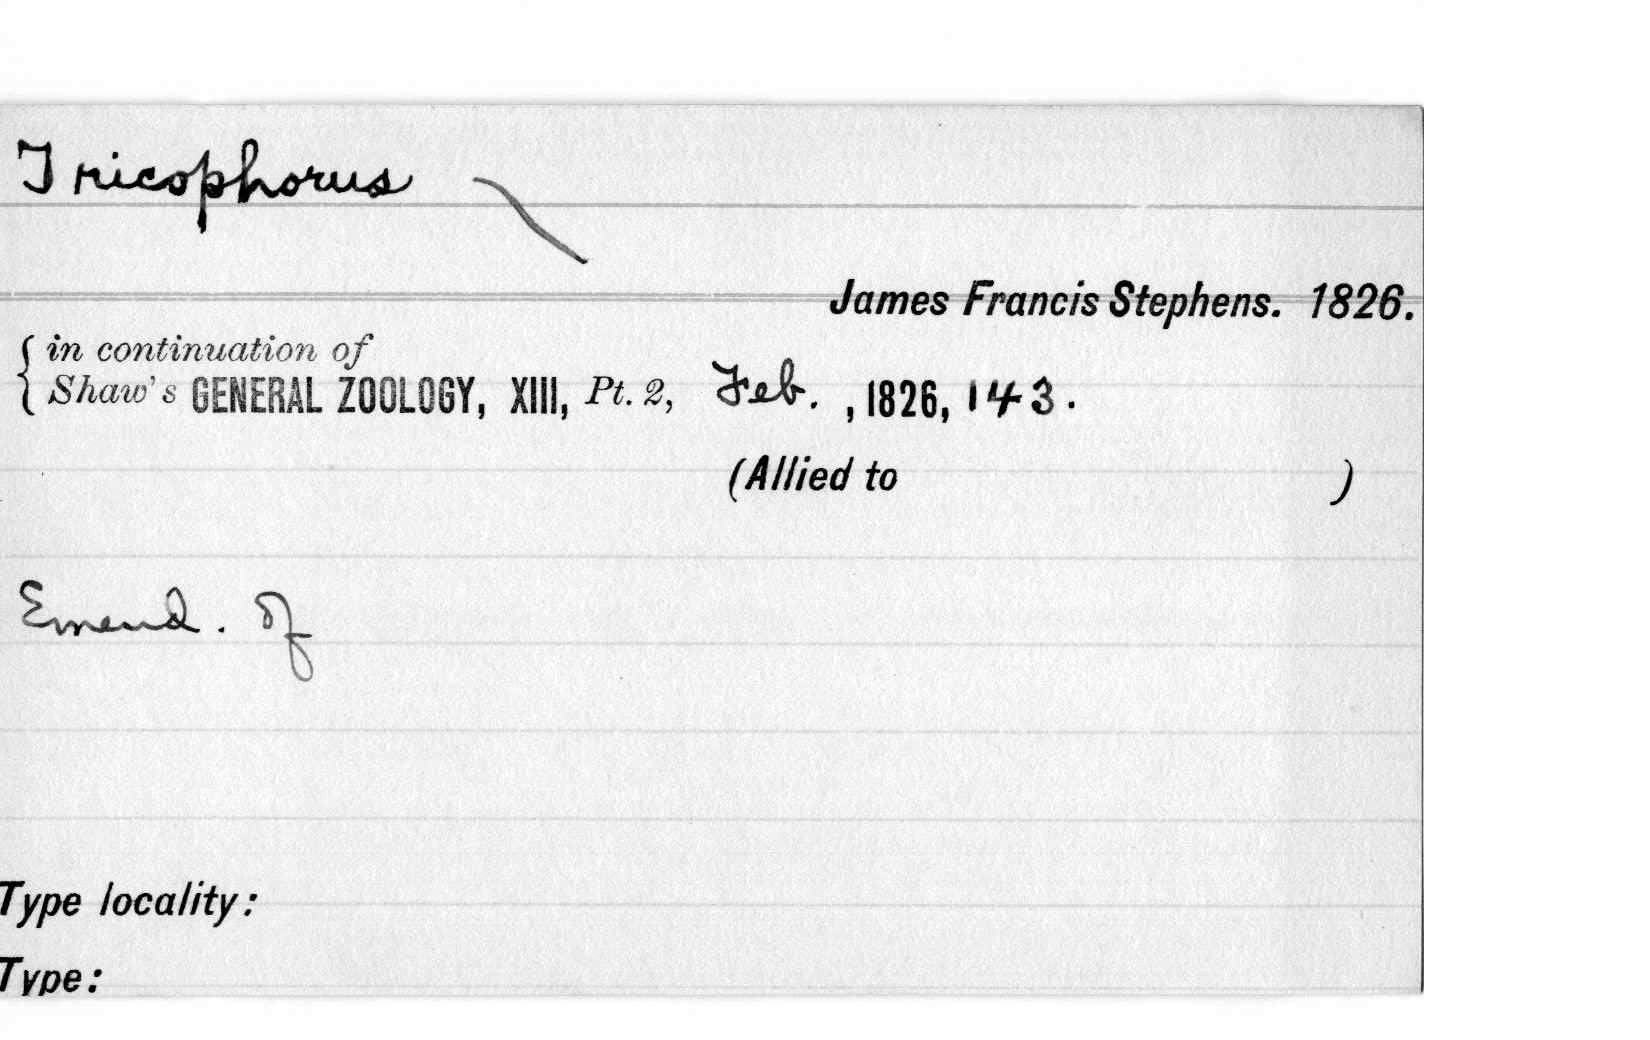 Tricophorus
James Francis Stephens. 1826.
in continuation of
Shaw's GENERAL ZOOLOGY, XIII, Pt. 2, Feb. , 1826, 143.
(Allied to )
Emend. of
Type locality:
Type: